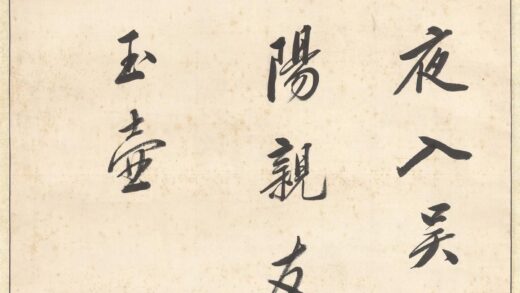 夜入吴
陽親友
玉壺